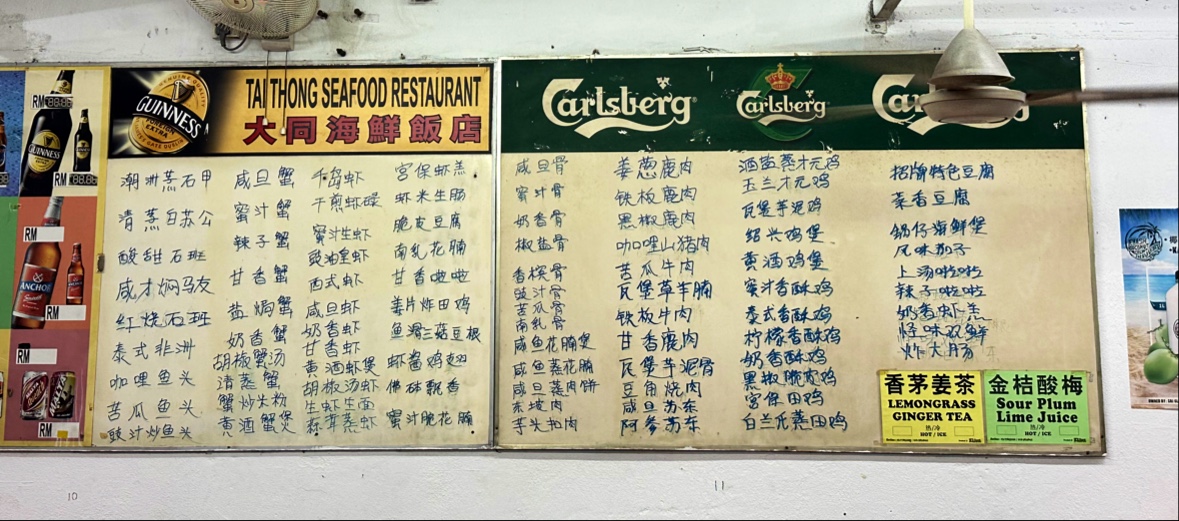 RM
GUINNESS
RM
RM
ANCHOR
RM
RM
RM
GENUINE QUALITY
GUINNESS
FOREIGN EXTRA
TAI THONG SEAFOOD RESTAURANT
大同海鮮飯店
潮洲蒸石甲
清蒸白苏公
酸甜石班
咸才焖马友
红烧石班
泰式非洲
咖哩鱼头
苦瓜鱼头
豉汁炒鱼头
咸旦蟹
蜜汁蟹
辣子蟹
甘香蟹
盐焗蟹
奶香蟹
胡椒蟹汤
清蒸蟹
蟹炒生粉
黄酒蟹煲
千岛虾
干煎虾碌
蜜汁生虾
豉油皇虾
西式虾
咸旦虾
奶香虾
甘香虾
黄酒虾煲
胡椒汤虾
生虾生面
蒜茸蒸虾
宫保虾羔
虾米生肠
脆皮豆腐
南乳花腩
甘香啦啦
姜片炸田鸡
鱼滑三菇豆根
虾酱鸡翅
佛砵飘香
蜜汁脆花腩
Carlsberg
Carlsberg
咸旦骨
蜜汁骨
奶香骨
椒盐骨
香槟骨
豉汁骨
苦瓜骨
南乳骨
咸鱼花腩煲
咸鱼蒸花腩
咸旦蒸肉饼
东坡肉
芋头扣肉
姜葱鹿肉
铁板鹿肉
黑椒鹿肉
咖哩山猪肉
苦瓜牛肉
瓦煲草羊腩
铁板牛肉
甘香鹿肉
瓦煲芋泥骨
豆角烧肉
咸旦苏东
阿参苏东
酒盐蒸才元鸡
玉兰才元鸡
瓦煲芋泥鸡
绍兴鸡煲
黄酒鸡煲
蜜汁香酥鸡
泰式香酥鸡
柠檬香酥鸡
奶香酥鸡
黑椒脆皮鸡
宫保田鸡
白兰氏蒸田鸡
招牌特色豆腐
菜香豆腐
锅仔海鲜煲
风味茄子
上汤啦啦
辣子啦啦
奶香虾羔
怪味双鲜
炸大肠
香茅姜茶
LEMONGRASS
GINGER TEA
热/冷
HOT / ICE
金桔酸梅
Sour Plum
Lime Juice
热/冷
HOT / ICE
10
11